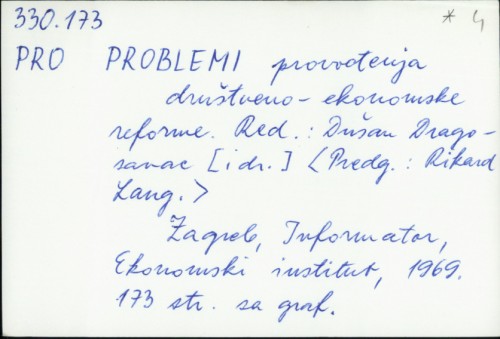 330.173 * 4
PRO PROBLEMI provođenja
društveno-ekonomske
reforme. Red.: Dušan Drago-
savac [i dr.] <Predg.: Rikard
Lang.>
Zagreb, Informator,
Ekonomski institut, 1969.
173 str. sa graf.